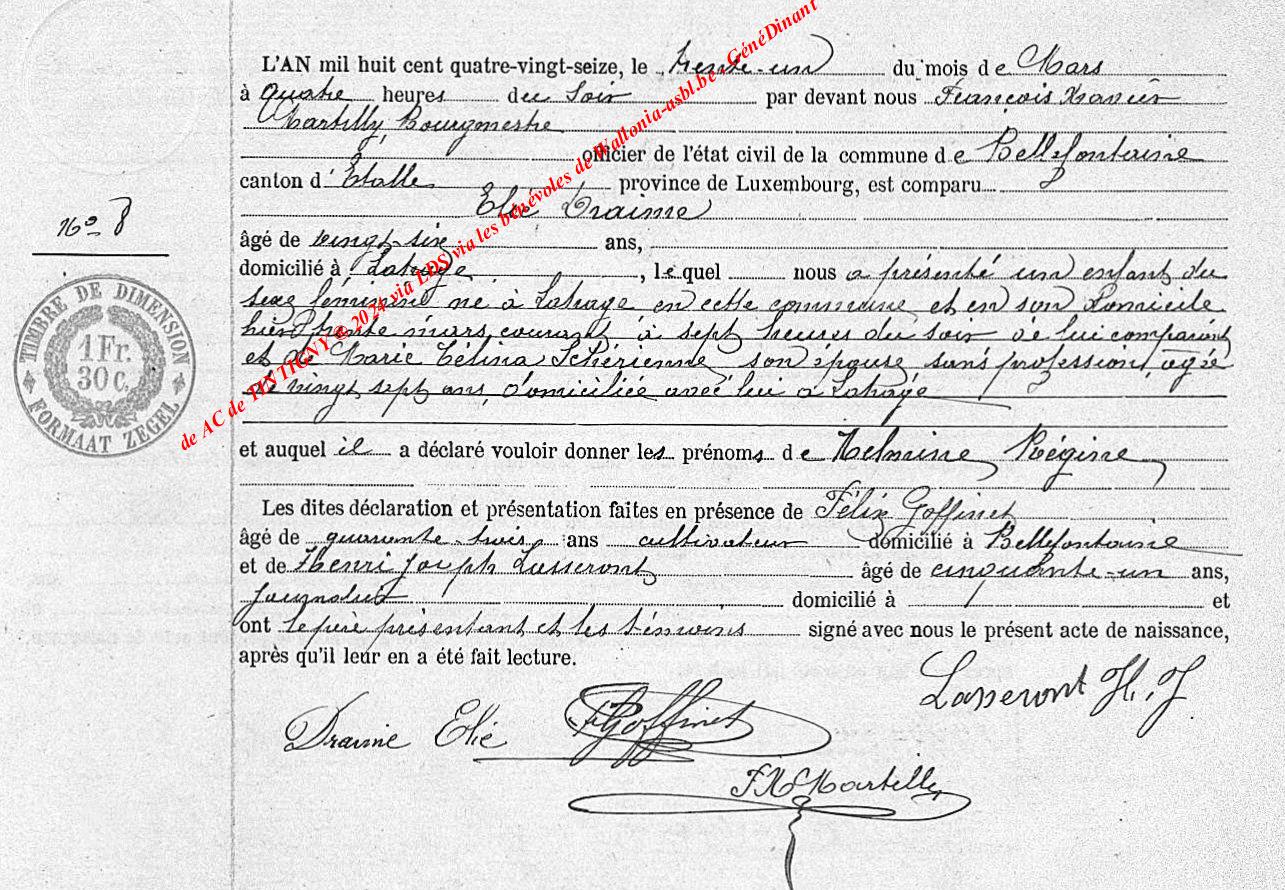 L'AN mil huit cent quatre-vingt-seize, le trente-un du mois de Mars
à Quatre heures du Soir par devant nous François Xavier
Martilly, Bourgmestre
officier de l'état civil de la commune de Bellefontaine
canton d'Etalle province de Luxembourg, est comparu
Elié Draime
N° 8
âgé de vingt-six ans,
domicilié à Lahage, lequel nous a présenté un enfant du
sexe féminin né à Lahage en cette commune et en son domicile
hier trente mars, courant à sept heures du soir de lui comparant
et de Marie Célina Schérienne son épouse, sans profession, agée
de vingt sept ans, domiciliée avec lui à Lahage
et auquel il a déclaré vouloir donner les prénoms de Helmine Régine
Les dites déclaration et présentation faites en présence de Félix Goffinet
âgé de quarante trois ans cultivateur domicilié à Bellefontaine
et de Henri Joseph Lasseront âgé de cinquante-un ans,
domicilié à et
ont le père présentant et les témoins signé avec nous le présent acte de naissance,
après qu'il leur en a été fait lecture.
Lasseront H. J
Draime Elié F Goffinet
F X Martilly
TIMBRE DE DIMENSION
1 Fr.
30 C.
FORMAAT ZEGEL
de AC de TINTIGNY @ 2024 via LDS via les bénévoles de Wallonia-asbl.be - GénéDinant